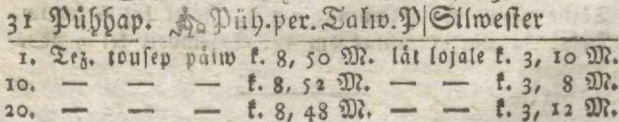 31 Pühhap. Püh. per. Talw. P|Silwester
1. Tez. tousep päiw k. 8, 50 M. lät lojale k. 3, 10 M.
10. — — — k. 8, 52 M. — — k. 3, 8 M.
20. — — — k. 8, 48 M. — — k. 3, 12 M.